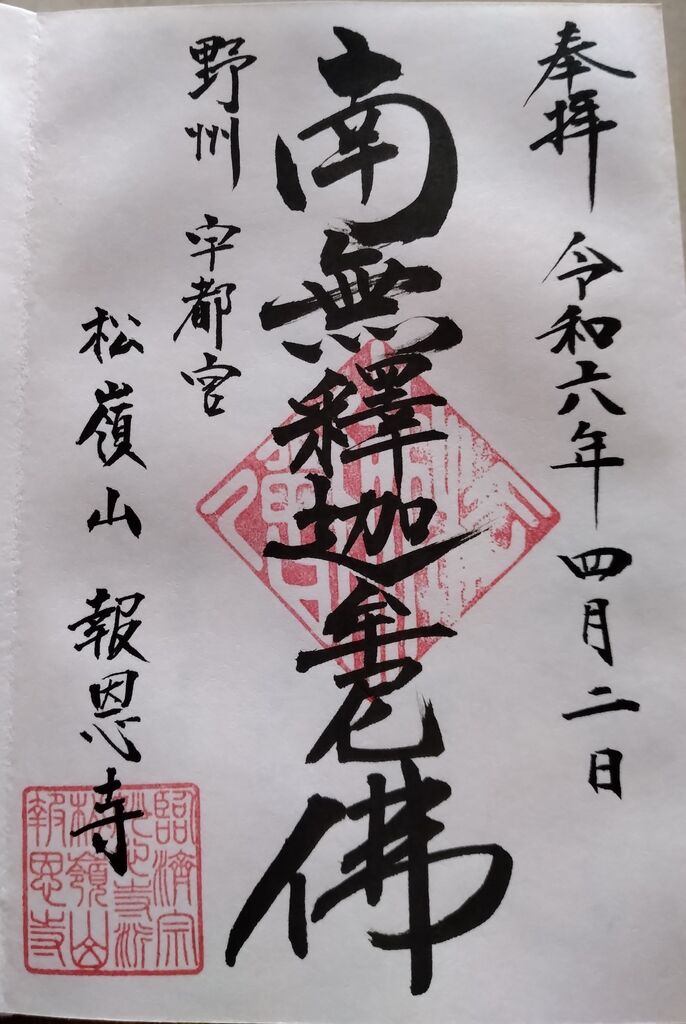 奉拝 令和六年四月二日
南無釋迦牟尼佛
野州 宇都宮
松嶺山 報恩寺
臨濟宗
妙心寺派
松嶺山
報恩寺